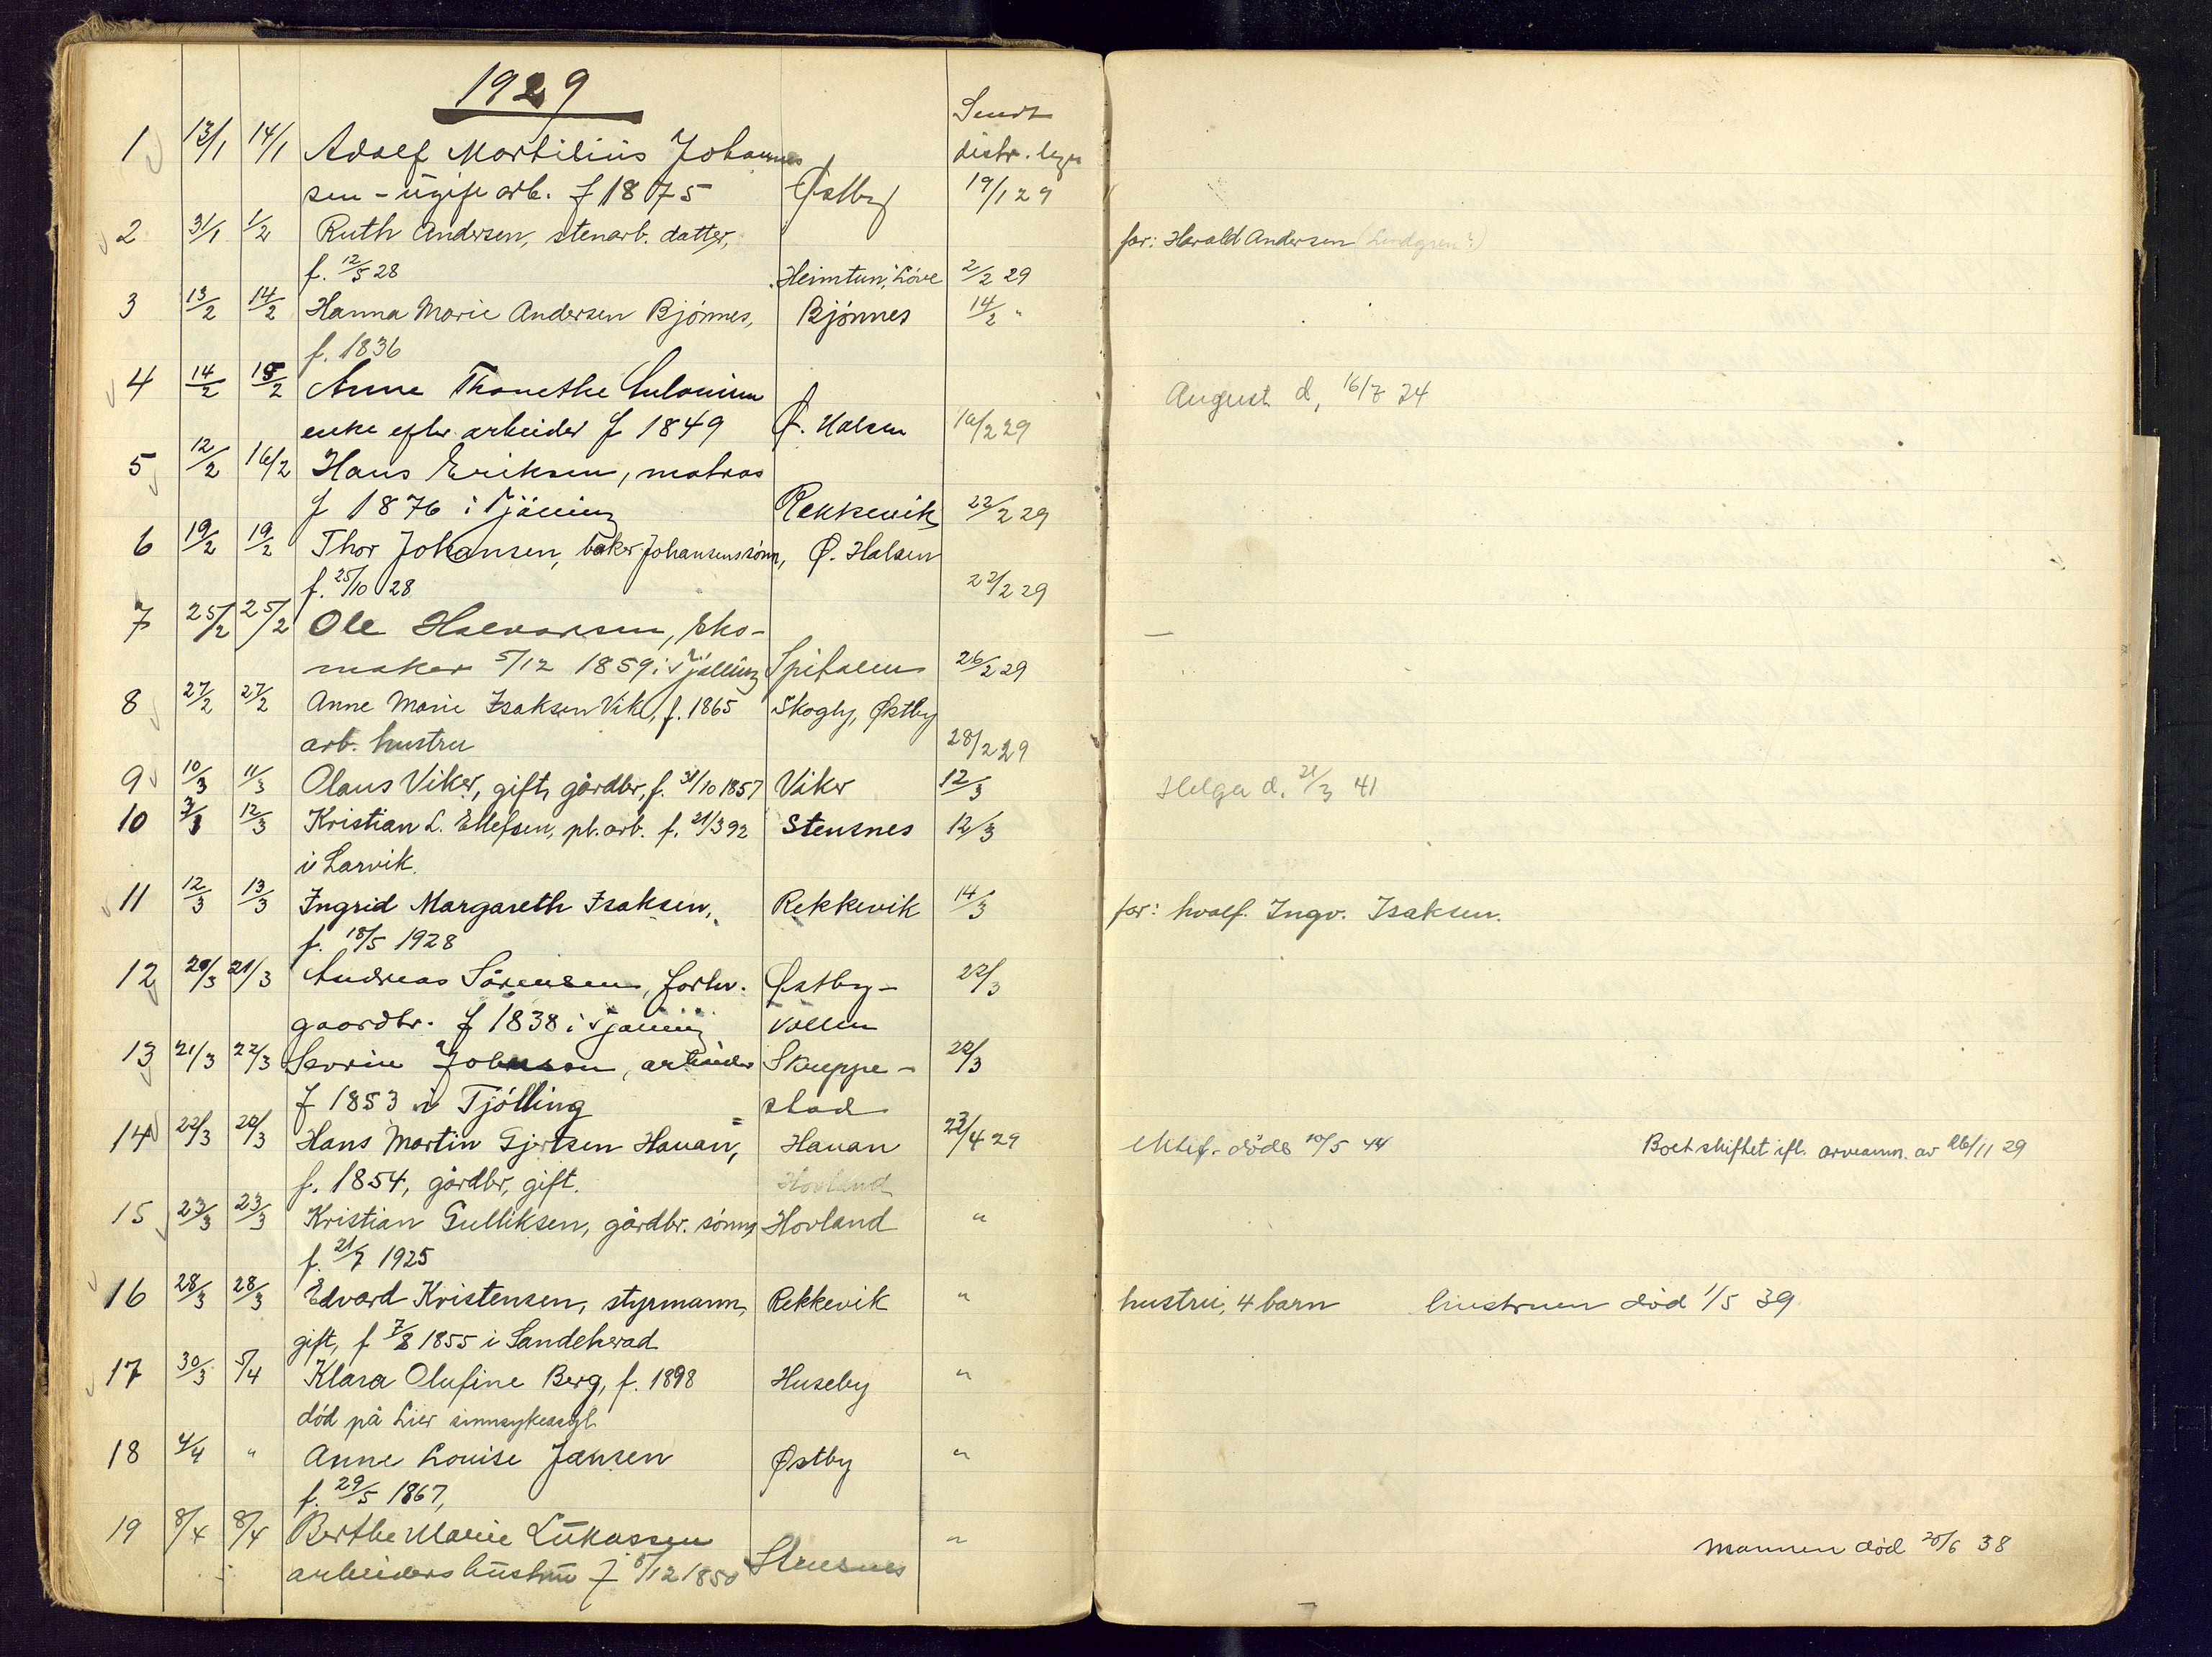 1929
Sendt
1 13/1 14/1 Adolf Johannes distr. lege
sen - ugift arb. f 1875 Østby 19/1 29
2 31/1 1/2 Ruth Andersen, stenarb. datter, far: Harald Andersen (Lindgren?)
f. 12/5 28 Heimtun, Löve 2/2 29
3 13/2 14/2 Hanna Marie Andersen Bjönnes, Bjönnes 14/2 "
f. 1836
4 14/2 15/2 Anne August d, 16/7 34
enke efter arbeider f 1849 Ø. Halsen 16/2 29
5 12/2 16/2 Hans Eriksen, matros
f 1876 i Tjölling Rekkevik 22/2 29
6 19/2 19/2 Thor Johansen, baker Johansens sönn, Ø. Halsen
f. 25/10 28 22/2 29
7 25/2 25/2 Ole Halvorsen, sko-
maker 5/12 1859 i Tjölling Spitalen 26/2 29
8 27/2 27/2 Anne Marie Isaksen Vik, f. 1865 Skogly, Østby
arb. hustru 28/2 29
9 10/3 11/3 Olaus Viker, gift, gårdbr, f. 31/10 1857 Viker 12/3 Helga d. 21/3 41
10 12/3 Kristian L. Ellefsen, pl. arb. f. 21/3 92 Stensnes 12/3
i Larvik.
11 12/3 13/3 Ingrid Margareth Isaksen, Rekkevik 14/3 far: hvalf. Ingv. Isaksen.
f. 18/5 1928
12 20/3 21/3 Andreas Sörensen, forhv. Østby- 22/3
gaardbr. f 1838 i Tjølling vollen
13 21/3 22/3 Severin Johnson, arbeider Skreppe- 22/3
f 1853 i Tjölling stad
14 22/3 22/3 Hans Martin Gjertsen Hauan, Hauan 23/4 29 Ektef. døde 10/5 44 Boet skiftet ifl. arveanm. av 26/11 29
f. 1854, gårdbr, gift. Hovland
15 23/3 23/3 Kristian Gulliksen, gårdbr. sönn, Hovland "
f. 21/7 1925
16 28/3 28/3 Edvard Kristensen, styrmann, Rekkevik " hustru, 4 barn hustruen död 1/5 39
gift, f 7/8 1855 i Sandeherad
17 30/3 5/4 Klara Olufine Berg, f. 1898 Huseby "
död på Lier sinnsykeasyl
18 4/4 " Anne Louise Jansen Østby "
f. 29/5 1867,
19 8/4 8/4 Berthe Marie Lukassen "
arbeiders hustru f 5/12 1850 Stensnes Mannen död 20/6 38